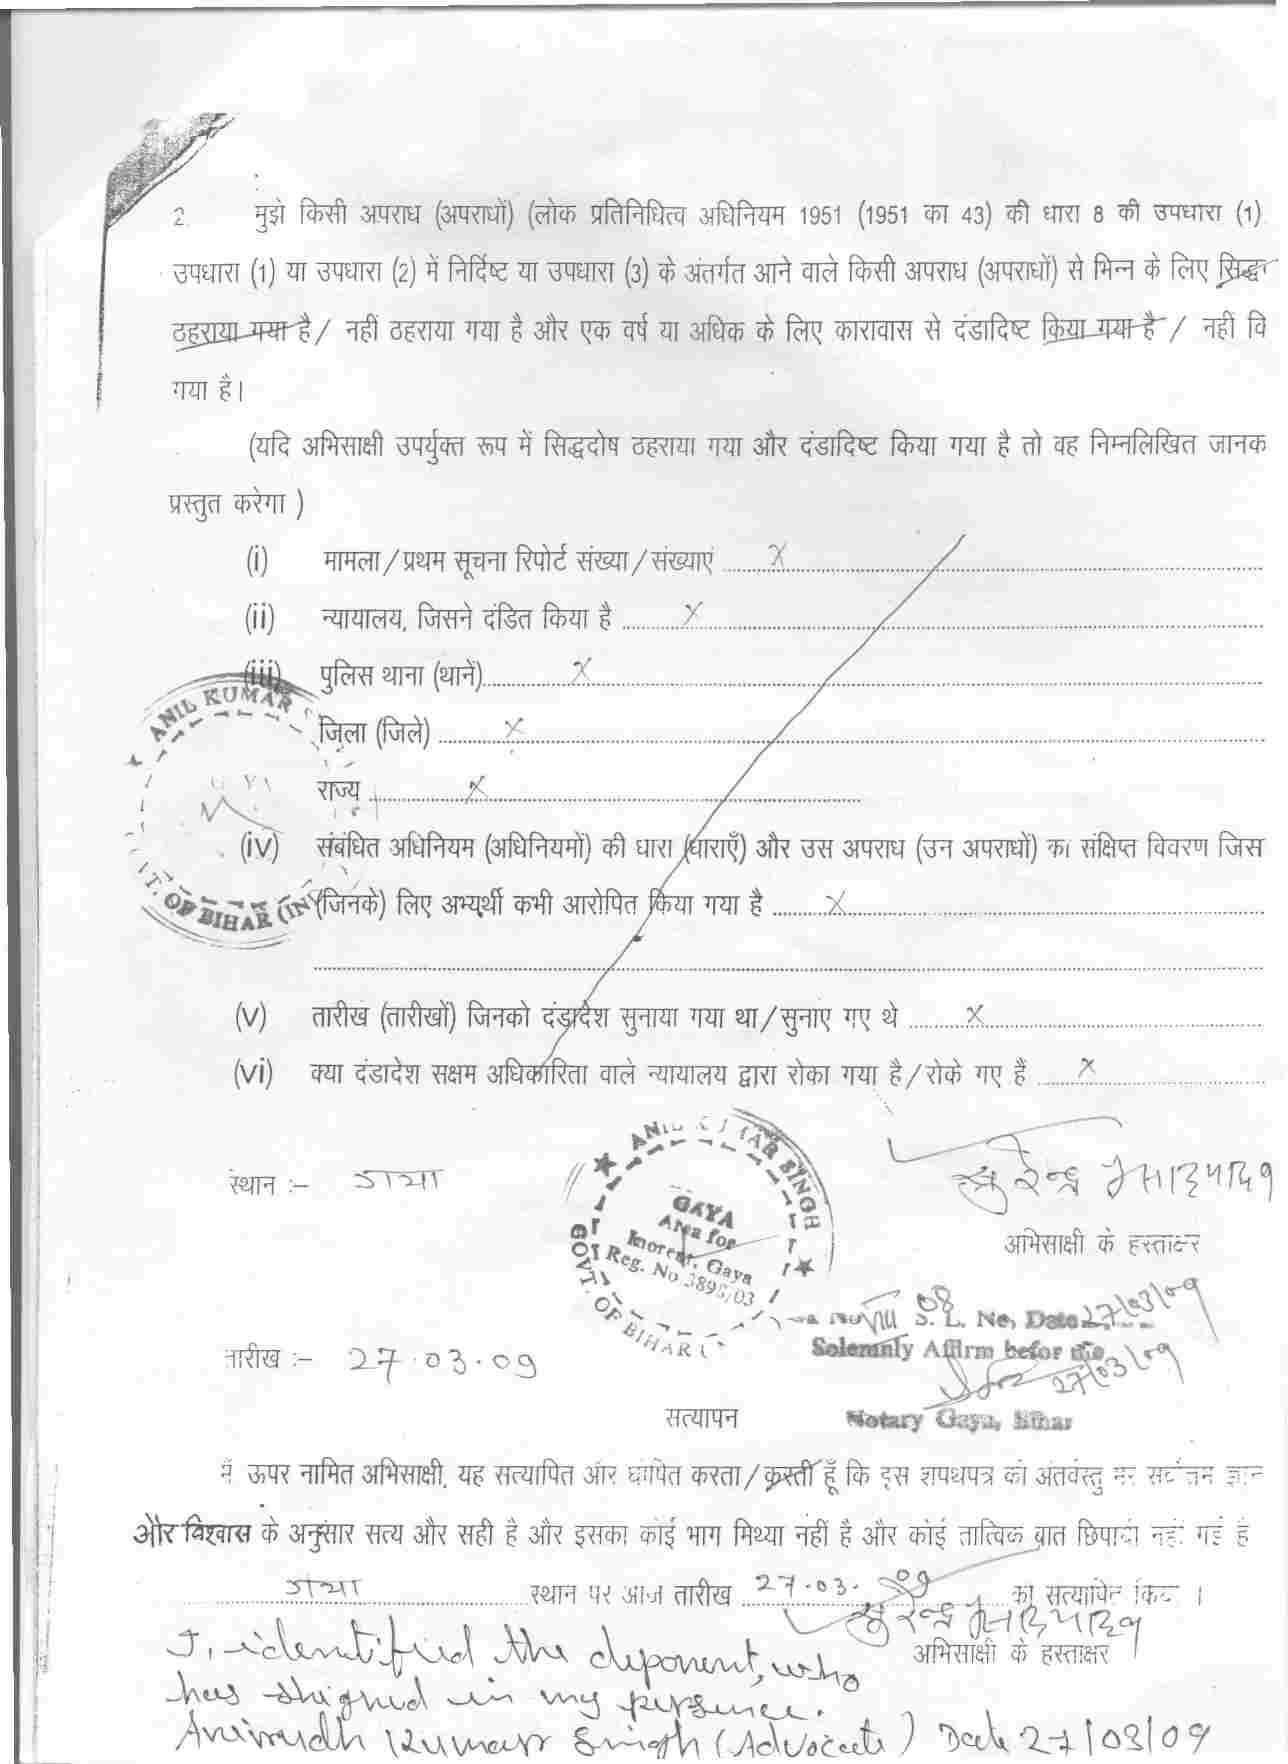 2. मुझे किसी अपराध (अपराधों) (लोक प्रतिनिधित्व अधिनियम 1951 (1951 का 43) की धारा 8 की उपधारा (1)
उपधारा (1) या उपधारा (2) में निर्दिष्ट या उपधारा (3) के अंतर्गत आने वाले किसी अपराध (अपराधों) से भिन्न के लिए सिद्ध
ठहराया गया है / नहीं ठहराया गया है और एक वर्ष या अधिक के लिए कारावास से दंडादिष्ट किया गया है / नहीं कि
गया है।
(यदि अभिसाक्षी उपर्युक्त रूप में सिद्धदोष ठहराया गया और दंडादिष्ट किया गया है तो वह निम्नलिखित जानक
प्रस्तुत करेगा )
(i) मामला / प्रथम सूचना रिपोर्ट संख्या / संख्याएं ........ X
(ii) न्यायालय, जिसने दंडित किया है ........ X
(iii) पुलिस थाना (थानें) ........ X
ANIL KUMAR
जिला (जिले) ........ X
राज्य ........ X
(iv) संबंधित अधिनियम (अधिनियमों) की धारा (धाराएँ) और उस अपराध (उन अपराधों) का संक्षिप्त विवरण जिस
(जिनके) लिए अभ्यर्थी कभी आरोपित किया गया है ........ X
T. OF BIHAR (IN
(v) तारीख (तारीखों) जिनको दंडादेश सुनाया गया था / सुनाए गए थे ........ X
(vi) क्या दंडादेश सक्षम अधिकारिता वाले न्यायालय द्वारा रोका गया है / रोके गए हैं ........ X
स्थान :- गया
SINGH
GAYA
Area for
Gaya
Reg. No.
GOVT. OF BIHAR (
सुरेन्द्र प्रसाद यादव
अभिसाक्षी के हस्ताक्षर
08 S. L. No, Date 27/03/09
Solemnly Affirm befor me
27/03/09
तारीख :- 27.03.09
Notary Gaya, Bihar
सत्यापन
मैं ऊपर नामित अभिसाक्षी, यह सत्यापित और घोषित करता / करती हूँ कि इस शपथपत्र की अंतर्वस्तु मेरे सर्वोत्तम ज्ञान
और विश्वास के अनुसार सत्य और सही है और इसका कोई भाग मिथ्या नहीं है और कोई तात्विक बात छिपायी नहीं गई है
गया स्थान पर आज तारीख 27.03.09 को सत्यापित किया ।
सुरेन्द्र प्रसाद यादव
अभिसाक्षी के हस्ताक्षर
I, identified the deponent, who
has shigned in my persence.
Anirudh Kumar Singh (Advocate) Date 27/03/09